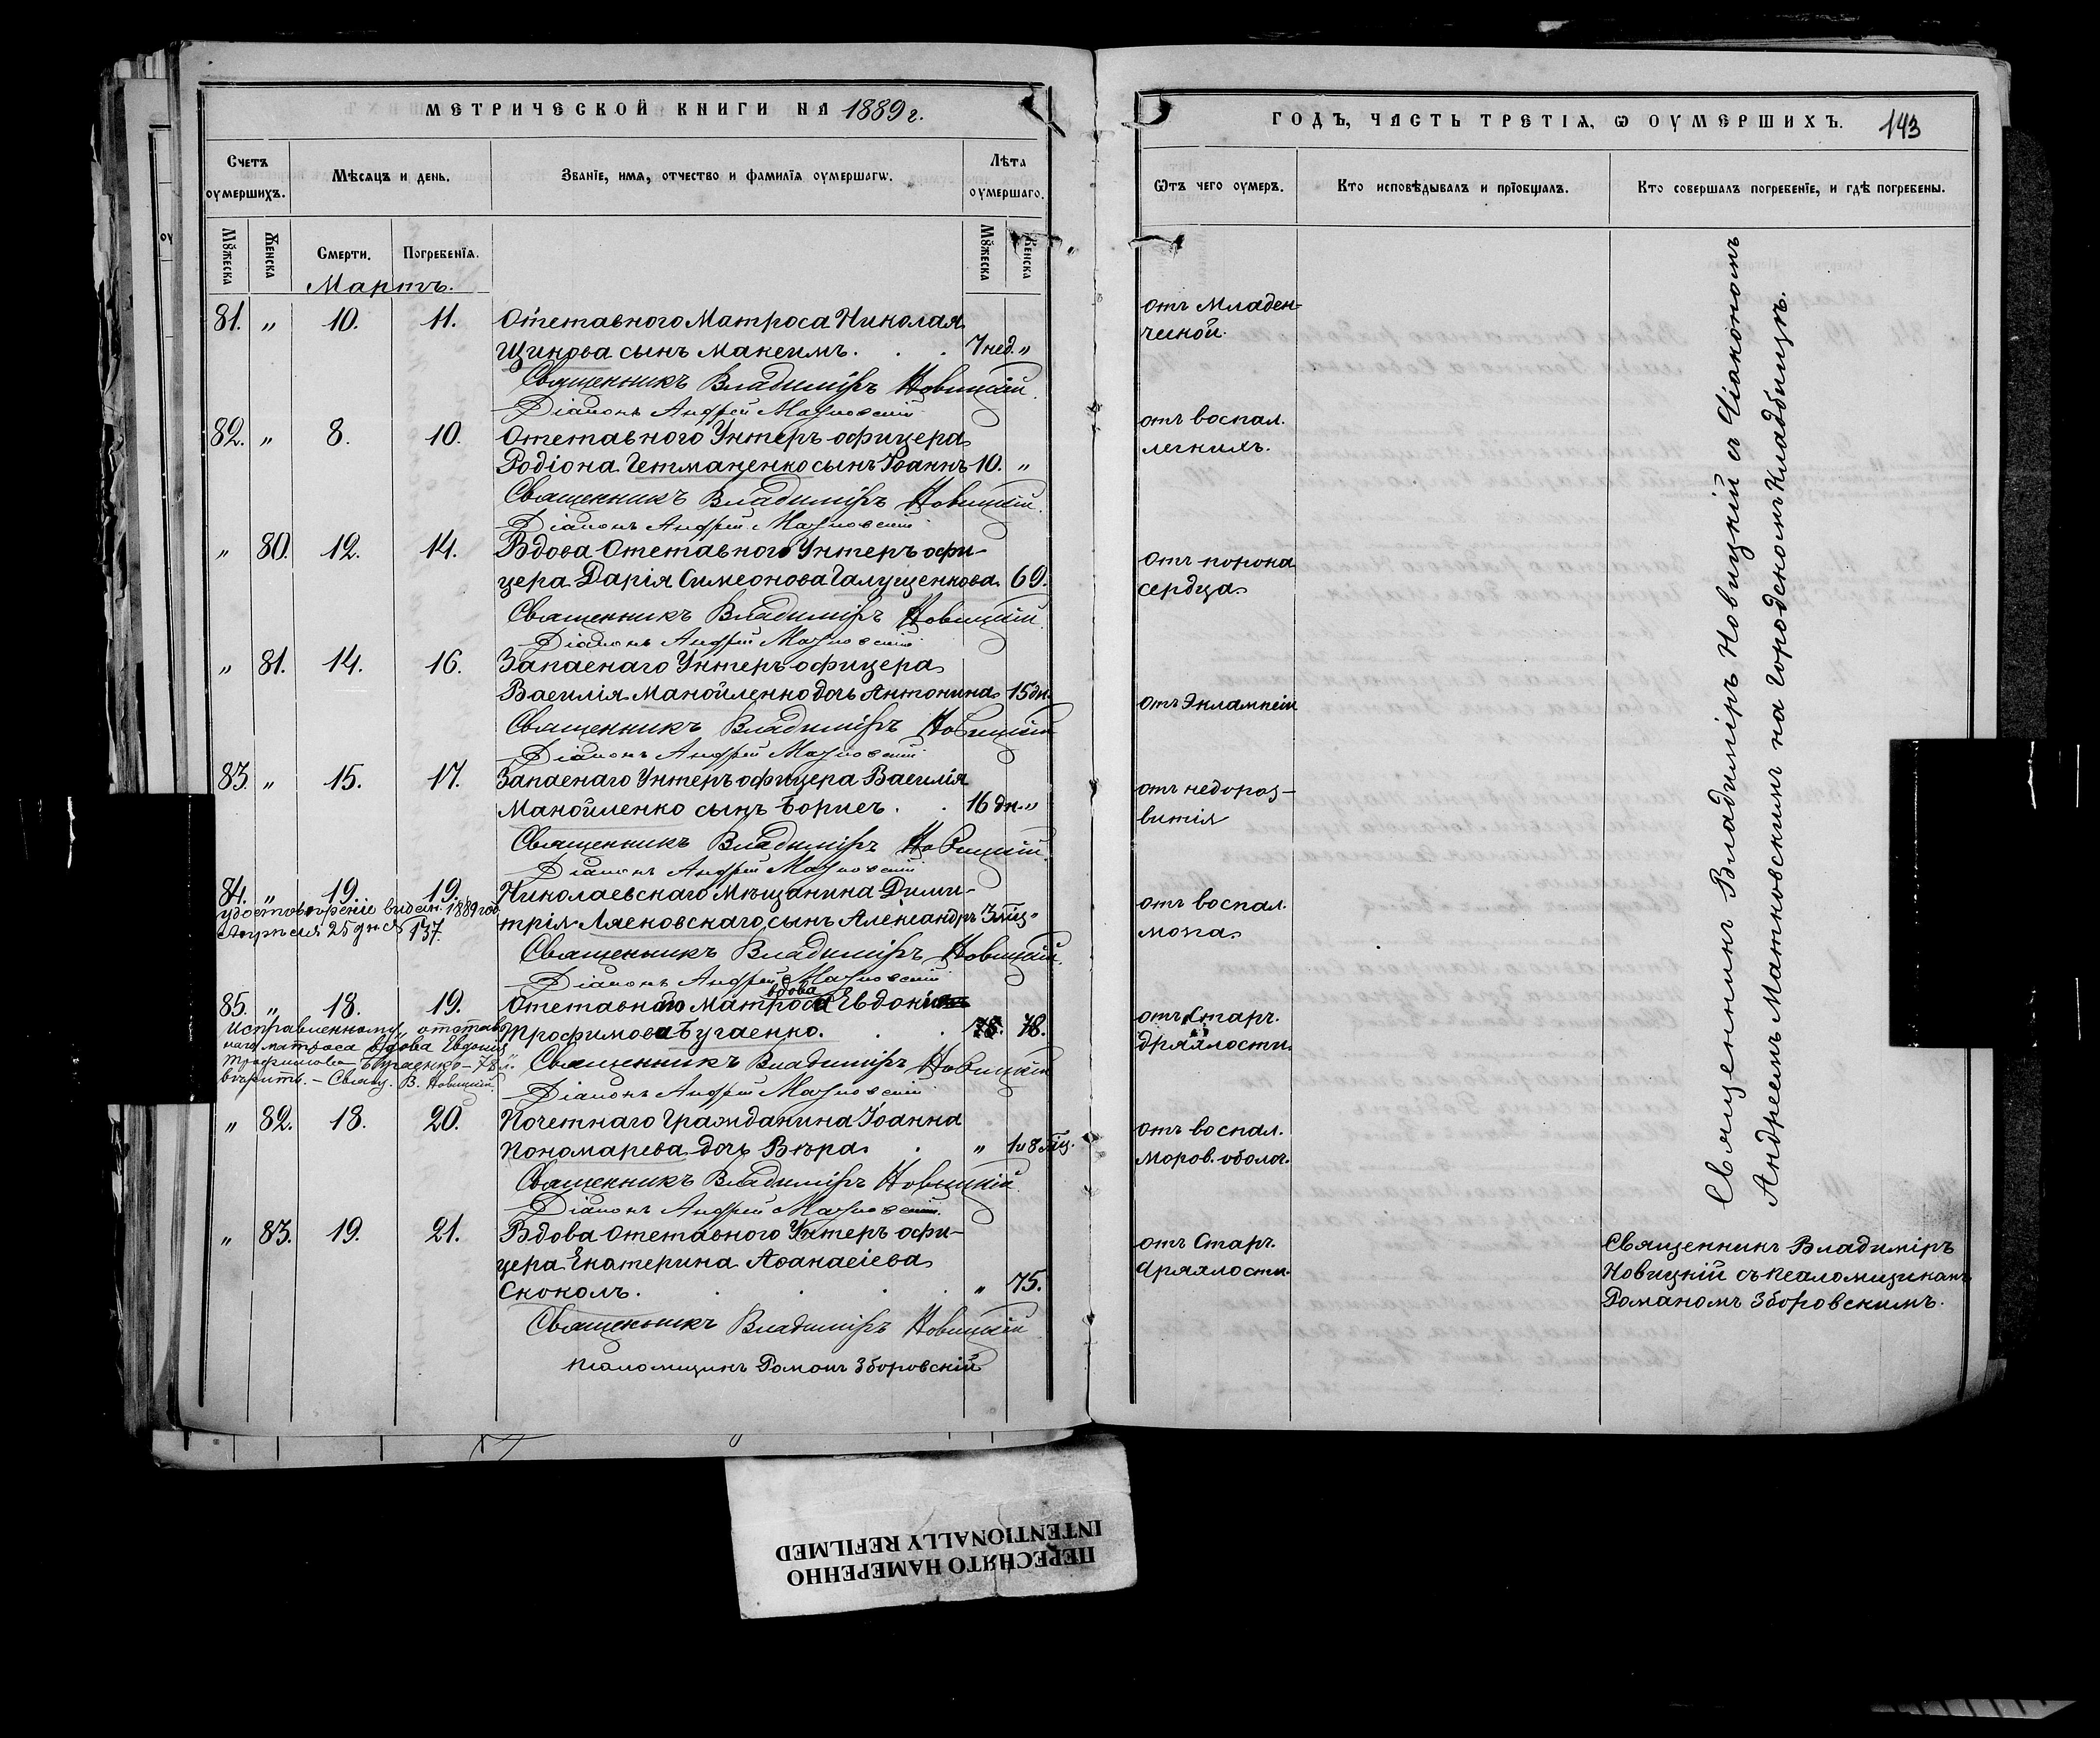 МЕТРИЧЕСКОЙ КНИГИ НА 1889 г.
Счетъ оумершихъ.
Мѣсяцъ и день.
Званіе, имя, отчество и фамилія оумершагѡ.
Лѣта оумершаго.
Мꙋжеска
Женска
Смерти.
Погребенія.
Мꙋжеска
Женска
Мартъ.
81. „ 10. 11. Отставного Матроса Николая
Щикова сынъ Максимъ. . . 7 нед. „
Священникъ Владиміръ Новицкій.
Діаконъ Андрей Матковскій
82. „ 8. 10. Отставного Унтеръ офицера
Родіона Гетманенко сынъ Іоаннъ 10. „
Священникъ Владиміръ Новицкій.
Діаконъ Андрей Матковскій
„ 80. 12. 14. Вдова Отставного Унтеръ офи-
цера Дарія Симеонова Галущенкова 69.
Священникъ Владиміръ Новицкій.
Діаконъ Андрей Матковскій
„ 81. 14. 16. Запаснаго Унтеръ офицера
Василія Манойленко дочь Антонина 15 дн.
Священникъ Владиміръ Новицкій
Діаконъ Андрей Матковскій
83. „ 15. 17. Запаснаго Унтеръ офицера Василія
Манойленко сынъ Борисъ. . 16 дн. „
Священникъ Владиміръ Новицкій.
Діаконъ Андрей Матковскій
84. „ 19. 19. Николаевскаго Мѣщанина Дими-
трія Лясковскаго сынъ Александръ 3 мѣц. „
удостовѣреніе выдан. 1889 год.
Апрѣля 25 дня 137.
Священникъ Владиміръ Новицкій.
Діаконъ Андрей Матковскій
вдова
85. „ 18. 19. Отставного матроса Евдокія
Трофимова Бугаенко. . . 78. 78.
Исправленному „отстав-
наго матроса вдова Евдокія
Трофимова Бугаенко – 78 л.“
вѣрить. – Свящ. В. Новицкій.
Священникъ Владиміръ Новицкій
Діаконъ Андрей Матковскій
„ 82. 18. 20. Почетнаго Гражданина Іоанна
Пономарева дочь Вѣра. . „ 1 и 8 мѣц.
Священникъ Владиміръ Новицкій
Діаконъ Андрей Матковскій.
„ 83. 19. 21. Вдова Отставного Унтеръ офи-
цера Екатерина Аѳанасіева
Скоколъ. . . . . „ 75.
Священникъ Владиміръ Новицкій
Псаломщикъ Романъ Зборовскій
ГОДЪ, ЧАСТЬ ТРЕТІѦ, Ѡ ОУМЕРШИХЪ. 143
Ѿтъ чего оумеръ.
Кто исповѣдывалъ и пріобщалъ.
Кто совершалъ погребеніе, и гдѣ погребены.
отъ Младен-
ческой.
отъ воспал.
легкихъ.
отъ порока
сердца
отъ Эклампсіи
отъ недораз-
витія
отъ воспал.
мозга
отъ Старч.
дряхлости.
отъ воспал.
мозгов. оболоч.
отъ Старч.
дряхлости.
Священникъ Владиміръ Новицкій съ Діакономъ
Андреемъ Матковскимъ на Городскомъ Кладбищѣ.
Священникъ Владиміръ
Новицкій съ псаломщикомъ
Романомъ Зборовскимъ.
ПЕРЕСНЯТО НАМЕРЕННО
INTENTIONALLY REFILMED